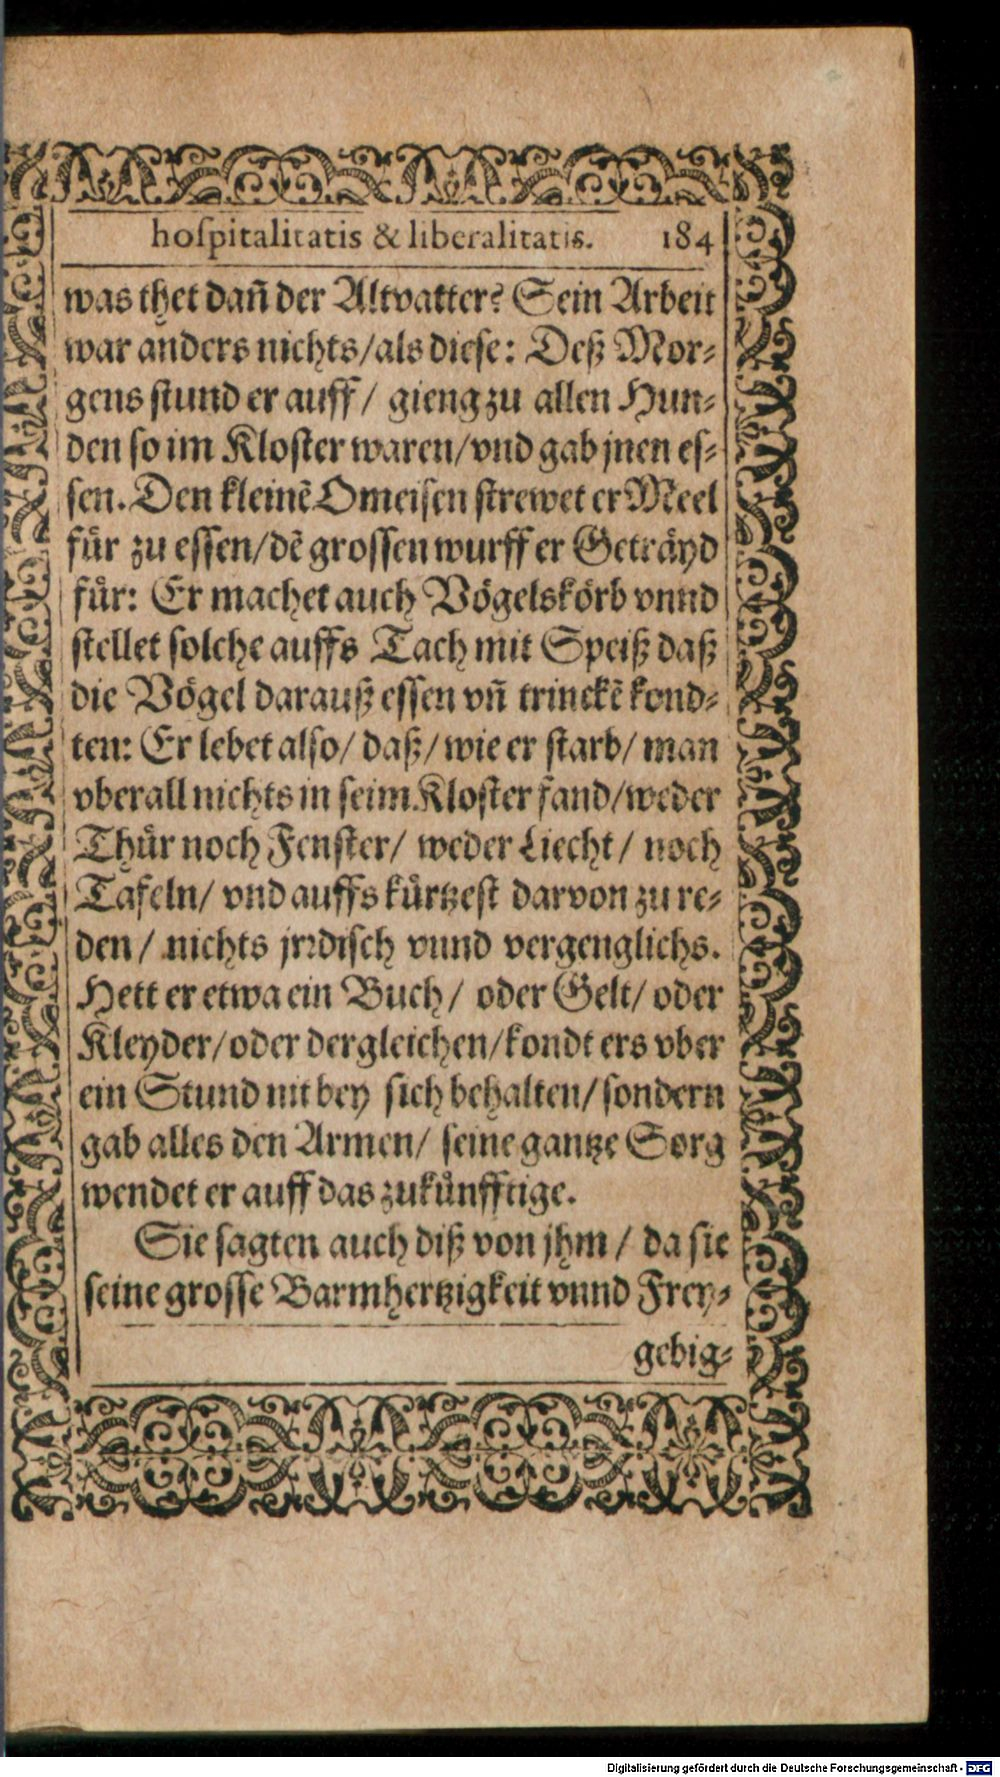 hoſpitalitatis & liberalitatis. 184
was thet dañ der Altvatter? Sein Arbeit
war anders nichts/als diese: Deß Mor⸗
gens stund er auff/ gieng zu allen Hun⸗
den so im Kloster waren/vnd gab jnen es⸗
sen. Den kleinẽ Omeisen strewet er Meel
fuͤr zu essen/dẽ grossen wurff er Getraͤyd
fuͤr: Er machet auch Voͤgelskoͤrb vnnd
stellet solche auffs Tach mit Speiß daß
die Voͤgel darauß essen vñ trinckẽ kond⸗
ten: Er lebet also/ daß/ wie er starb/ man
vberall nichts in seim Kloster fand/weder
Thuͤr noch Fenster/ weder Liecht/ noch
Tafeln/ vnd auffs kuͤrtzest darvon zu re⸗
den/ nichts jrꝛdisch vnnd vergenglichs.
Hett er etwa ein Buch/ oder Gelt/ oder
Kleyder/oder dergleichen/kondt ers vber
ein Stund nit bey sich behalten/sondern
gab alles den Armen/ seine gantze Sorg
wendet er auff das zukuͤnfftige.
Sie sagten auch diß von jhm/ da sie
seine grosse Barmhertzigkeit vnnd Frey⸗
gebig⸗
Digitalisierung gefördert durch die Deutsche Forschungsgemeinschaft - DFG